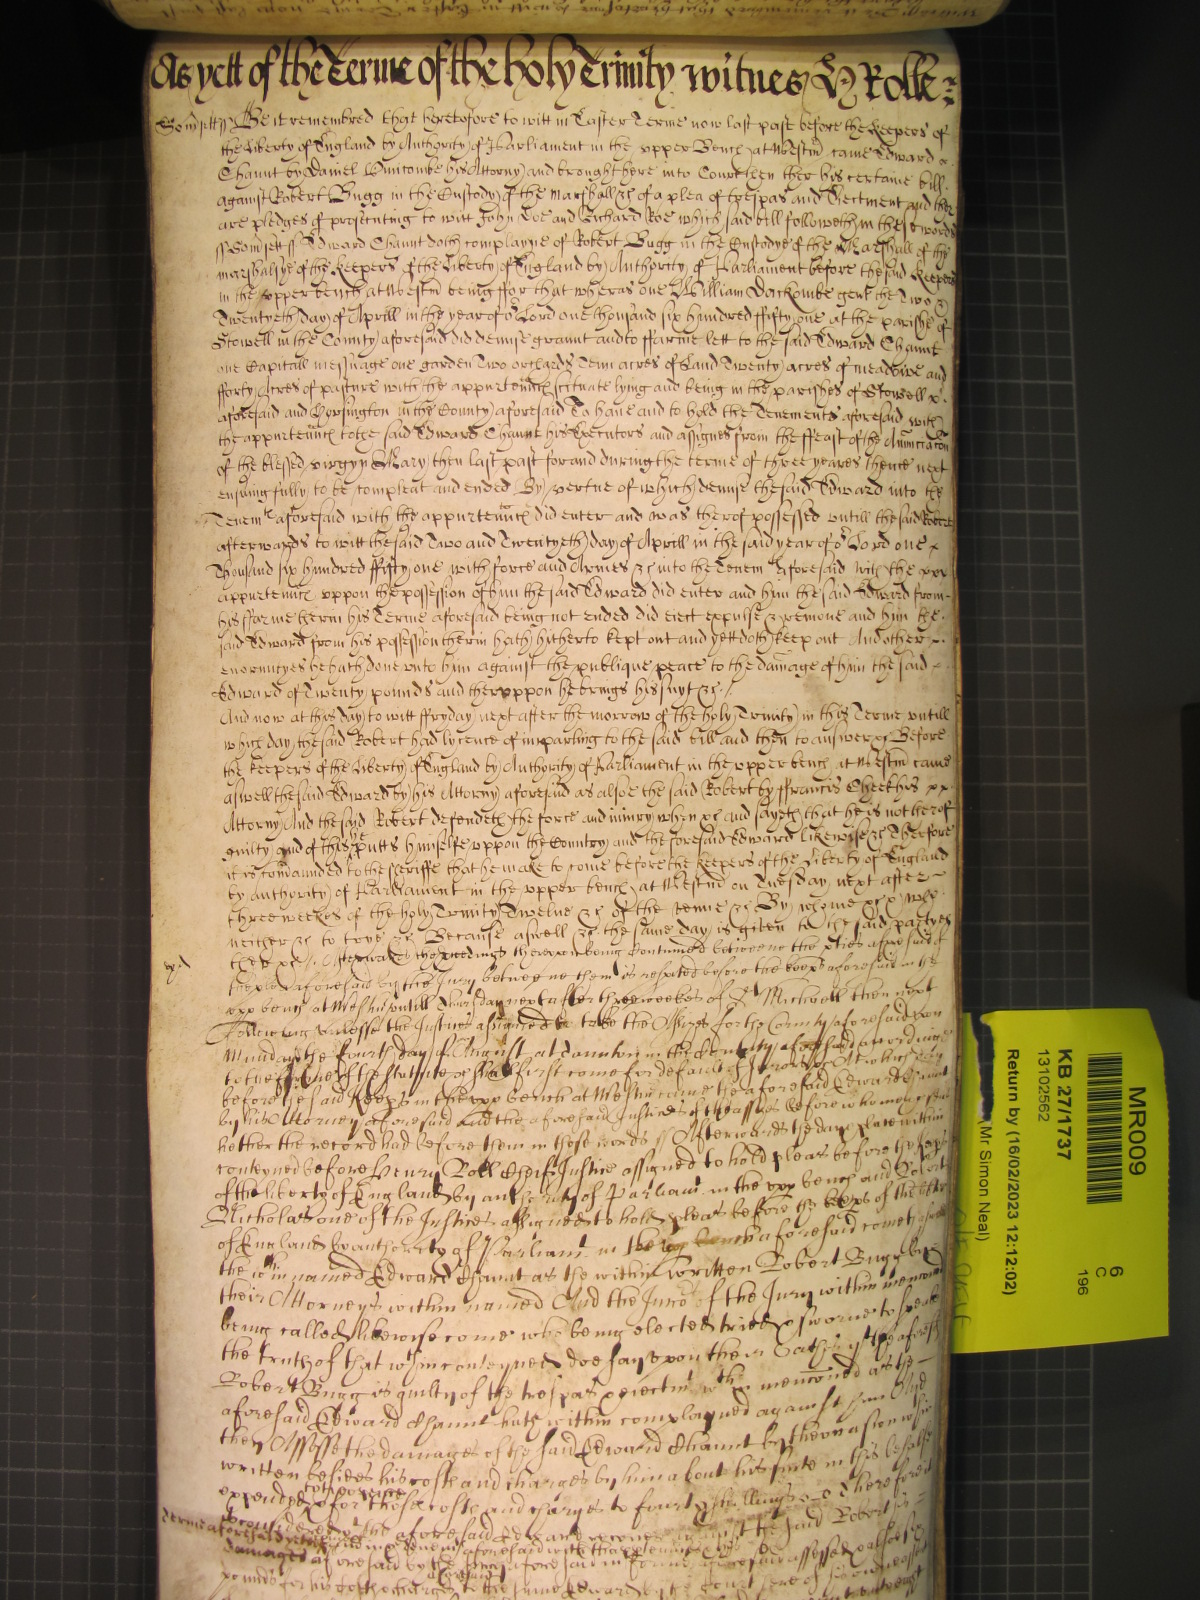 As yett of the Terme of the holy Trinity witnes H Rolle
Somsett ss Be it remembred that heretofore to witt in Easter Terme now last past before the Keepers of
the Liberty of England by Authority of Parliament in the upper Bench at Westm came Edward
Chaunt by Daniel his Attorney and brought here into Court then ther his certaine bill
against Robert Bugg in the Custody of the Marshall &c of a plea of trespas and Eiectment and ther
are pledges of prosecuting to witt John Doe and Richard Roe which said bill followeth in these words
ss Somsett ss Edward Chaunt doth complayne of Robert Bugg in the Custodye of the Marshall of the
marshalsye of the Keepers of the Liberty of England by Authority of Parliament before the said Keepers
in the upper bench at Westm being ffor that wheras one William Dackombe gent the Two &
Twentyeth day of Aprill in the yeare of or Lord one thousand six hundred ffifty one at the parishe of
Stowell in the County aforesaid did demise graunt and to ffarme lett to the said Edward Chaunt
one Capitall messuage one garden Two orchards Tenn acres of Land Twenty acres of meadowe and
fforty Acres of pasture with the appurtenncs scituate lying and being in the parishes of Stowell
aforesaid and Horsington in the County aforesaid To have and to hold the Tenements aforesaid with
the appurtenncs to the said Edward Chaunt his Executors and assignes from the ffeast of the Annunciacon
of the blessed virgyn Mary then last past for and during the terme of three yeares thence next
ensuing fully to be compleat and ended By vertue of which demise the said Edward into the
Tenemts aforesaid with the appurtenncs did enter and was therof possessed untill the said Robert
afterwards to witt the said Two and Twentyeth day of Aprill in the said year of or Lord one
Thousand six hundred ffifty one with force and Armes &c into the Tenemts aforesaid with the
appurtenncs uppon the possession of him the said Edward did enter and him the said Edward from
his ffarme therin his Terme aforesaid being not ended did eiect expulse & remove and him the
said Edward from his possession therin hath hitherto kept out and yett doth keep out And other
enormityes he hath done unto him against the publique peace to the damage of him the said
Edward of Twenty pounds and theruppon he brings his suyt &c
And now at this day to witt ffryday next after the morrow of the holy Trinity in this Terme untill
which day the said Robert had lycence of imparling to the said bill and then to answer &c Before
the Keepers of the Liberty of England by Authority of Parliament in the upper bench at Westm came
aswell the said Edward by his Attorney aforesaid as alsoe the said Robert by ffrancis Cheeke his
Attorney And the said Robert defendeth the force and iniury when &c and sayeth that he is not therof
guilty and of this he putts himselfe uppon the Country and the foresaid Edward likewise &c Therefore
it is comaunded to the Sheriffe that he make to come before the Keepers of the Liberty of England
by Authority of Parliament in the upper bench at Westm on Tuesday next after
three weekes of the holy Trinity Twelve &c of the venue &c By whome &c who
neither &c to trye &c Because aswell &c the same day is given to the said partyes
there &c Afterwards the proceedings thereupon being continued betweene the pties aforesaid of
the plea aforesaid by the Jury betweene them is respited before the keeps aforesaid in the
upp bench at Westm untill Thursday next after three weekes of St Michaell then next
Following unlesse the Justices assigned to take the Assizes for the County aforesaid upon
Munday the fourth day of August at Taunton in the County aforesaid according
to the forme of the statute &c shall first come for default of Jurors &c At which day
before the said Keeps in the upp bench at Westm came the aforesaid Edward Chaunt
by his Attorney aforesaid And the aforesaid Justices of the assizes before whome &c sent
hether the record had before them in these words ss Afterwards the day & place within
conteyned before Henry Roll Cheife Justice assigned to hold pleas before the keeps
of the liberty of England by authority of Parliam in the upp bench and Robert
Nicholas one of the Justices assigned to hold pleas before the keeps of the liberty
of England by authority of Parliamt in the upp bench aforesaid cometh aswell
the win named Edward Chaunt as the within written Robert Bugg by
their Attorneys within named And the Jurors of the Jury within menconed
being called likewise come who being elected tried & sworne to speak
the truth of that within conteyned doe say upon their Oath yt the aforesaid
Robert Bugg is guilty of the trespas & eiectmt within menconed as the
aforesaid Edward Chaunt hath within complayned against him And
they Assesse the damages of the said Edward Chaunt by the occasion within
written besides his costs and charges by him about his suite in this behalfe
expended to and for those costs and charges to fourty shillings Therefore it
is considered yt the aforesaid Edward recover against the said Robert his
Terme aforesaid
damages aforesaid by the Jury aforesaid in forme aforesaid assessed & alsoe six
pounds for his costs & charges to the same Edward by the Court
MR009
6
C
196
KB 27/1737
13102562
Return by (16/02/2023 12:12:02)
(Mr Simon Neal)